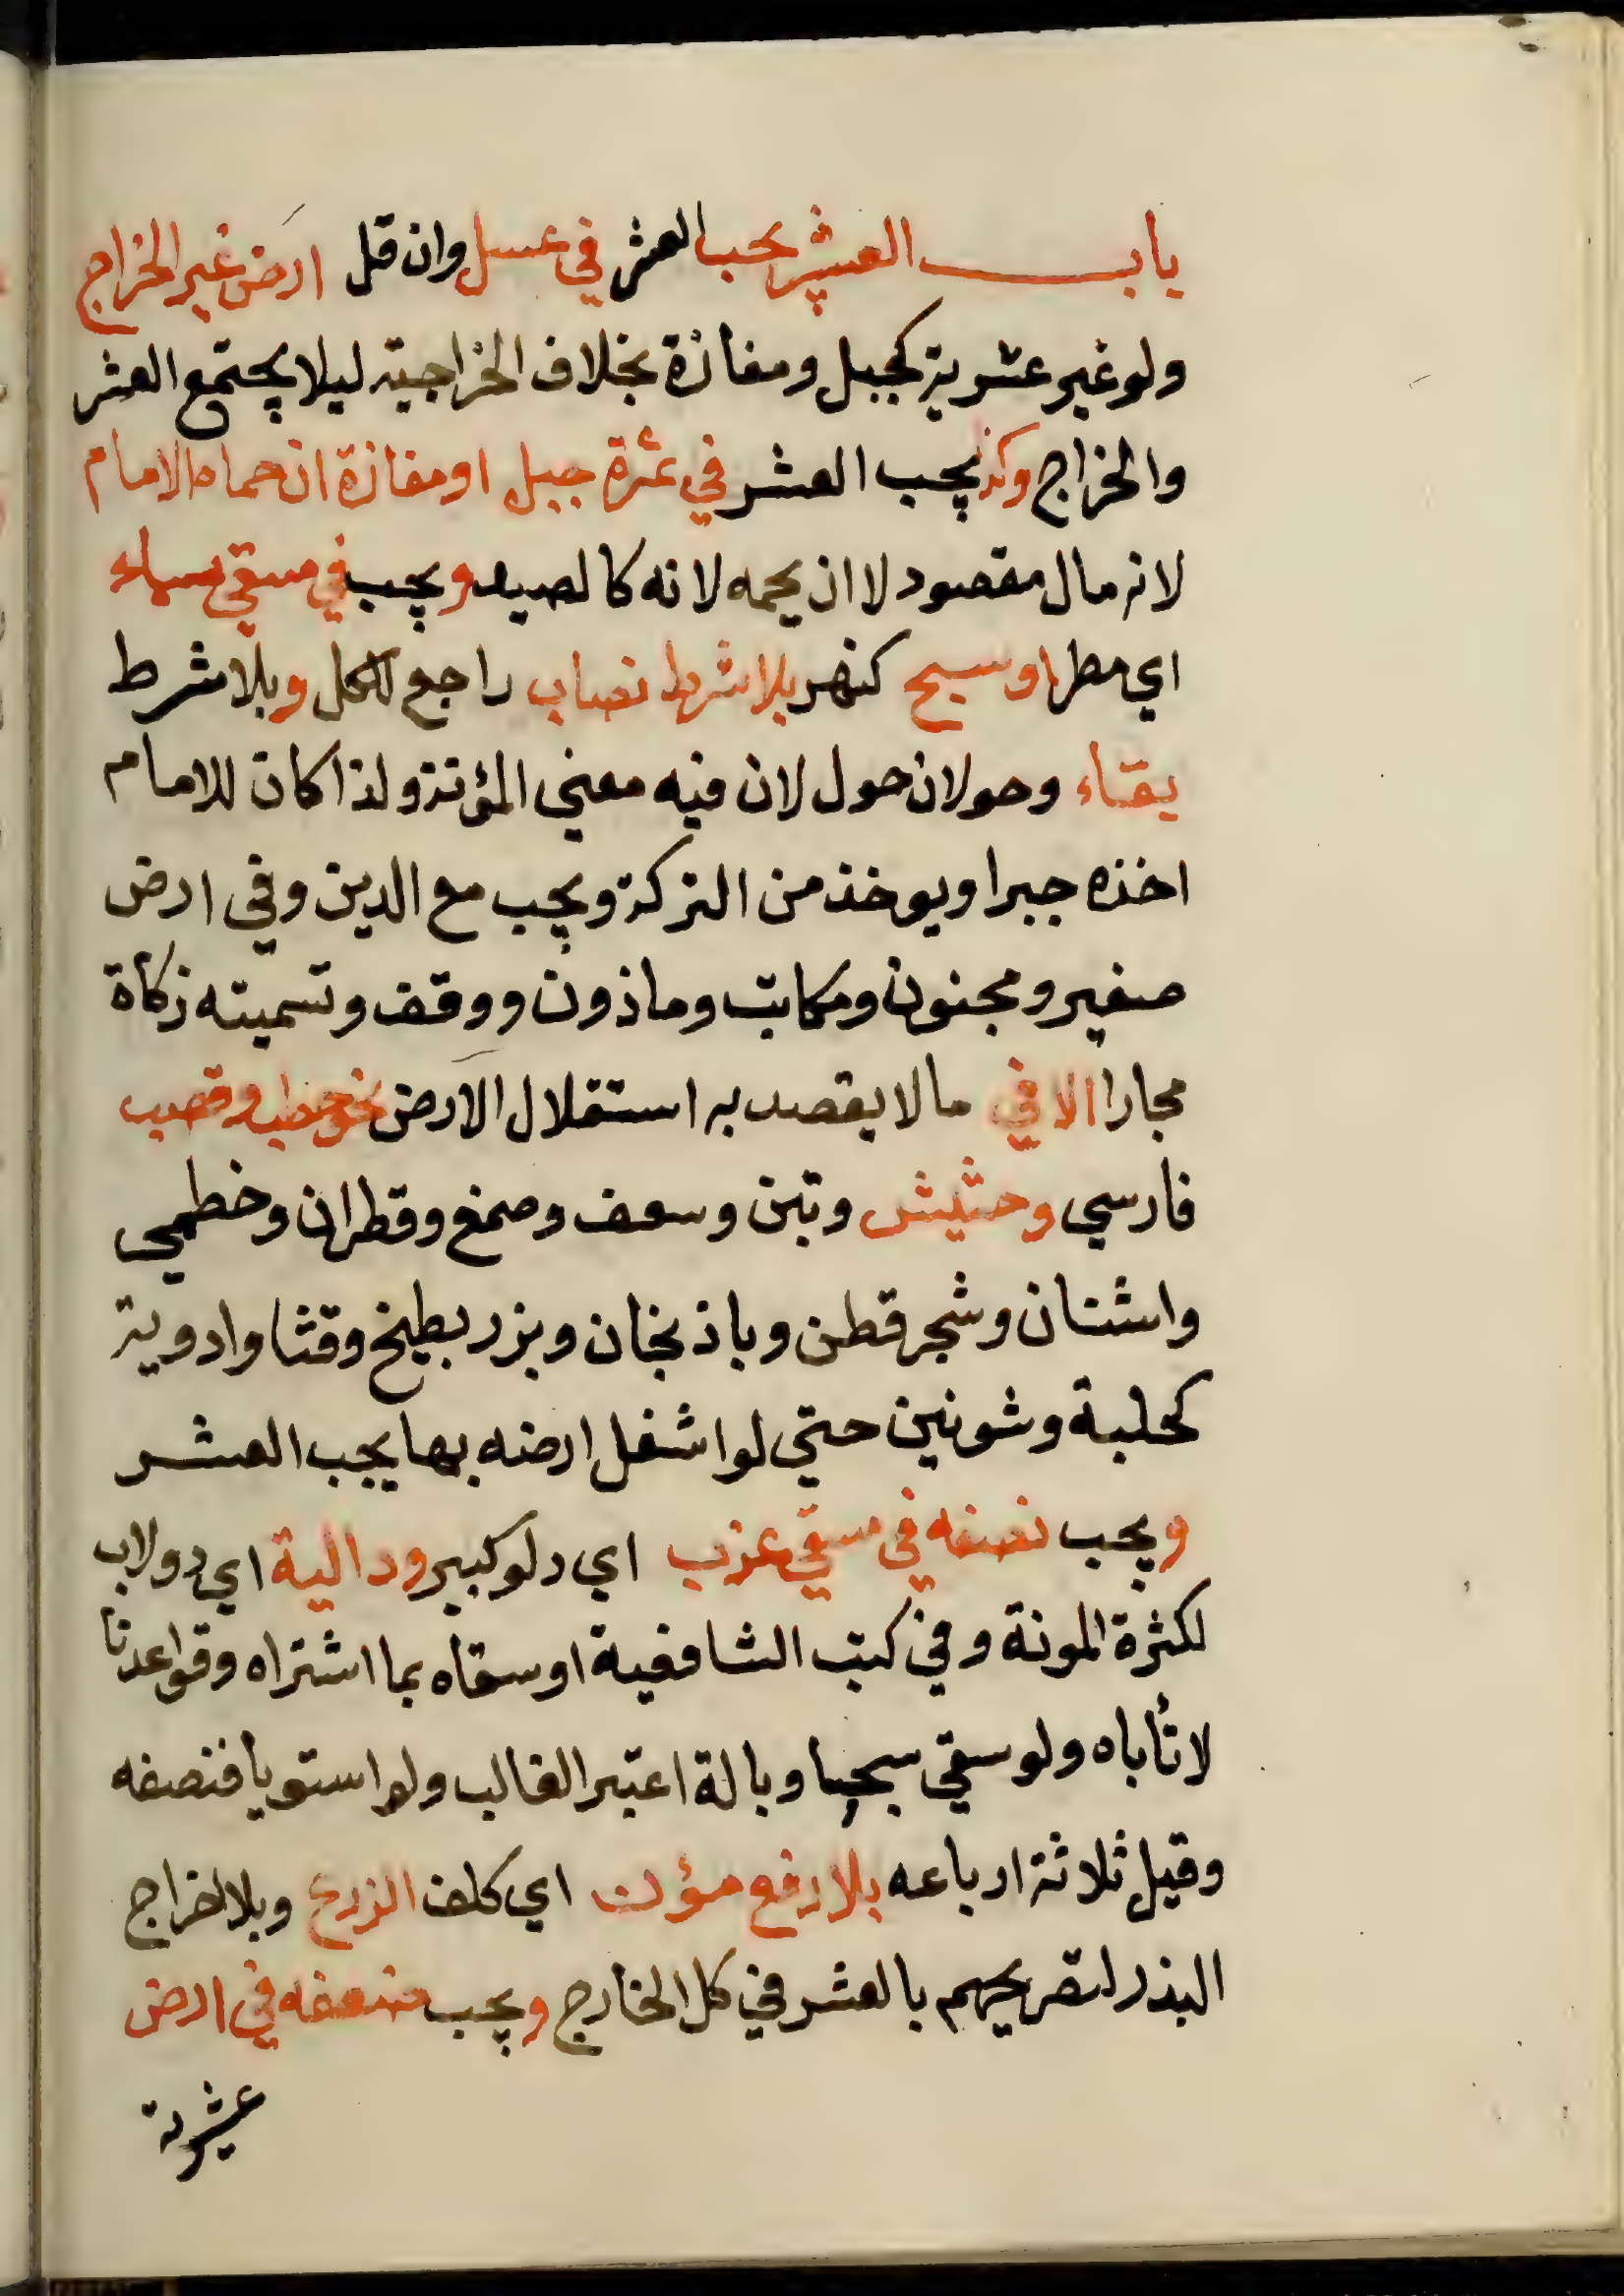 باب العشر يجب العشر في عسل وان قل ارض غير الخراج
ولو غير عشرية كجبل ومفازة بخلاف الخراجية ليلا يجتمع العشر
والخراج وكذا يجب العشر في ثمرة جبل او مفازة ان حماه الامام
لانه مال مقصود لا ان يحمه لانه كالصيد ويجب في مسقي سماء
اي مطر او سيح كنهر بلا شرط نصاب راجع للكل وبلا شرط
بقاء وحولان حول لان فيه معني المؤنة ولذا كان للامام
اخذه جبرا ويوخذ من التركة ويجب مع الدين وفي ارض
صغير ومجنون ومكاتب وماذون ووقف وتسميته زكاة
مجازا الا في ما لا يقصد به استغلال الارض نحو حطب وقصب
فارسي وحشيش وتبن وسعف وصمغ وقطران وخطمي
واشنان وشجر قطن وباذنجان وبزر بطيخ وقثا وادوية
كحلبة وشونيز حتي لو اشغل ارضه بها يجب العشر
ويجب نصفه في مسقي غرب اي دلو كبير ودالية اي دولاب
لكثرة المونة وفي كتب الشافعية او سقاه بما اشتراه وقواعدنا
لا تأباه ولو سقي سيحا وبالة اعتبر الغالب ولو استويا فنصفه
وقيل ثلاثة ارباعه بلا رفع مؤن اي كلف الزرع وبلا اخراج
البذر لتصريحهم بالعشر في كل الخارج ويجب ضعفه في ارض
عشرية